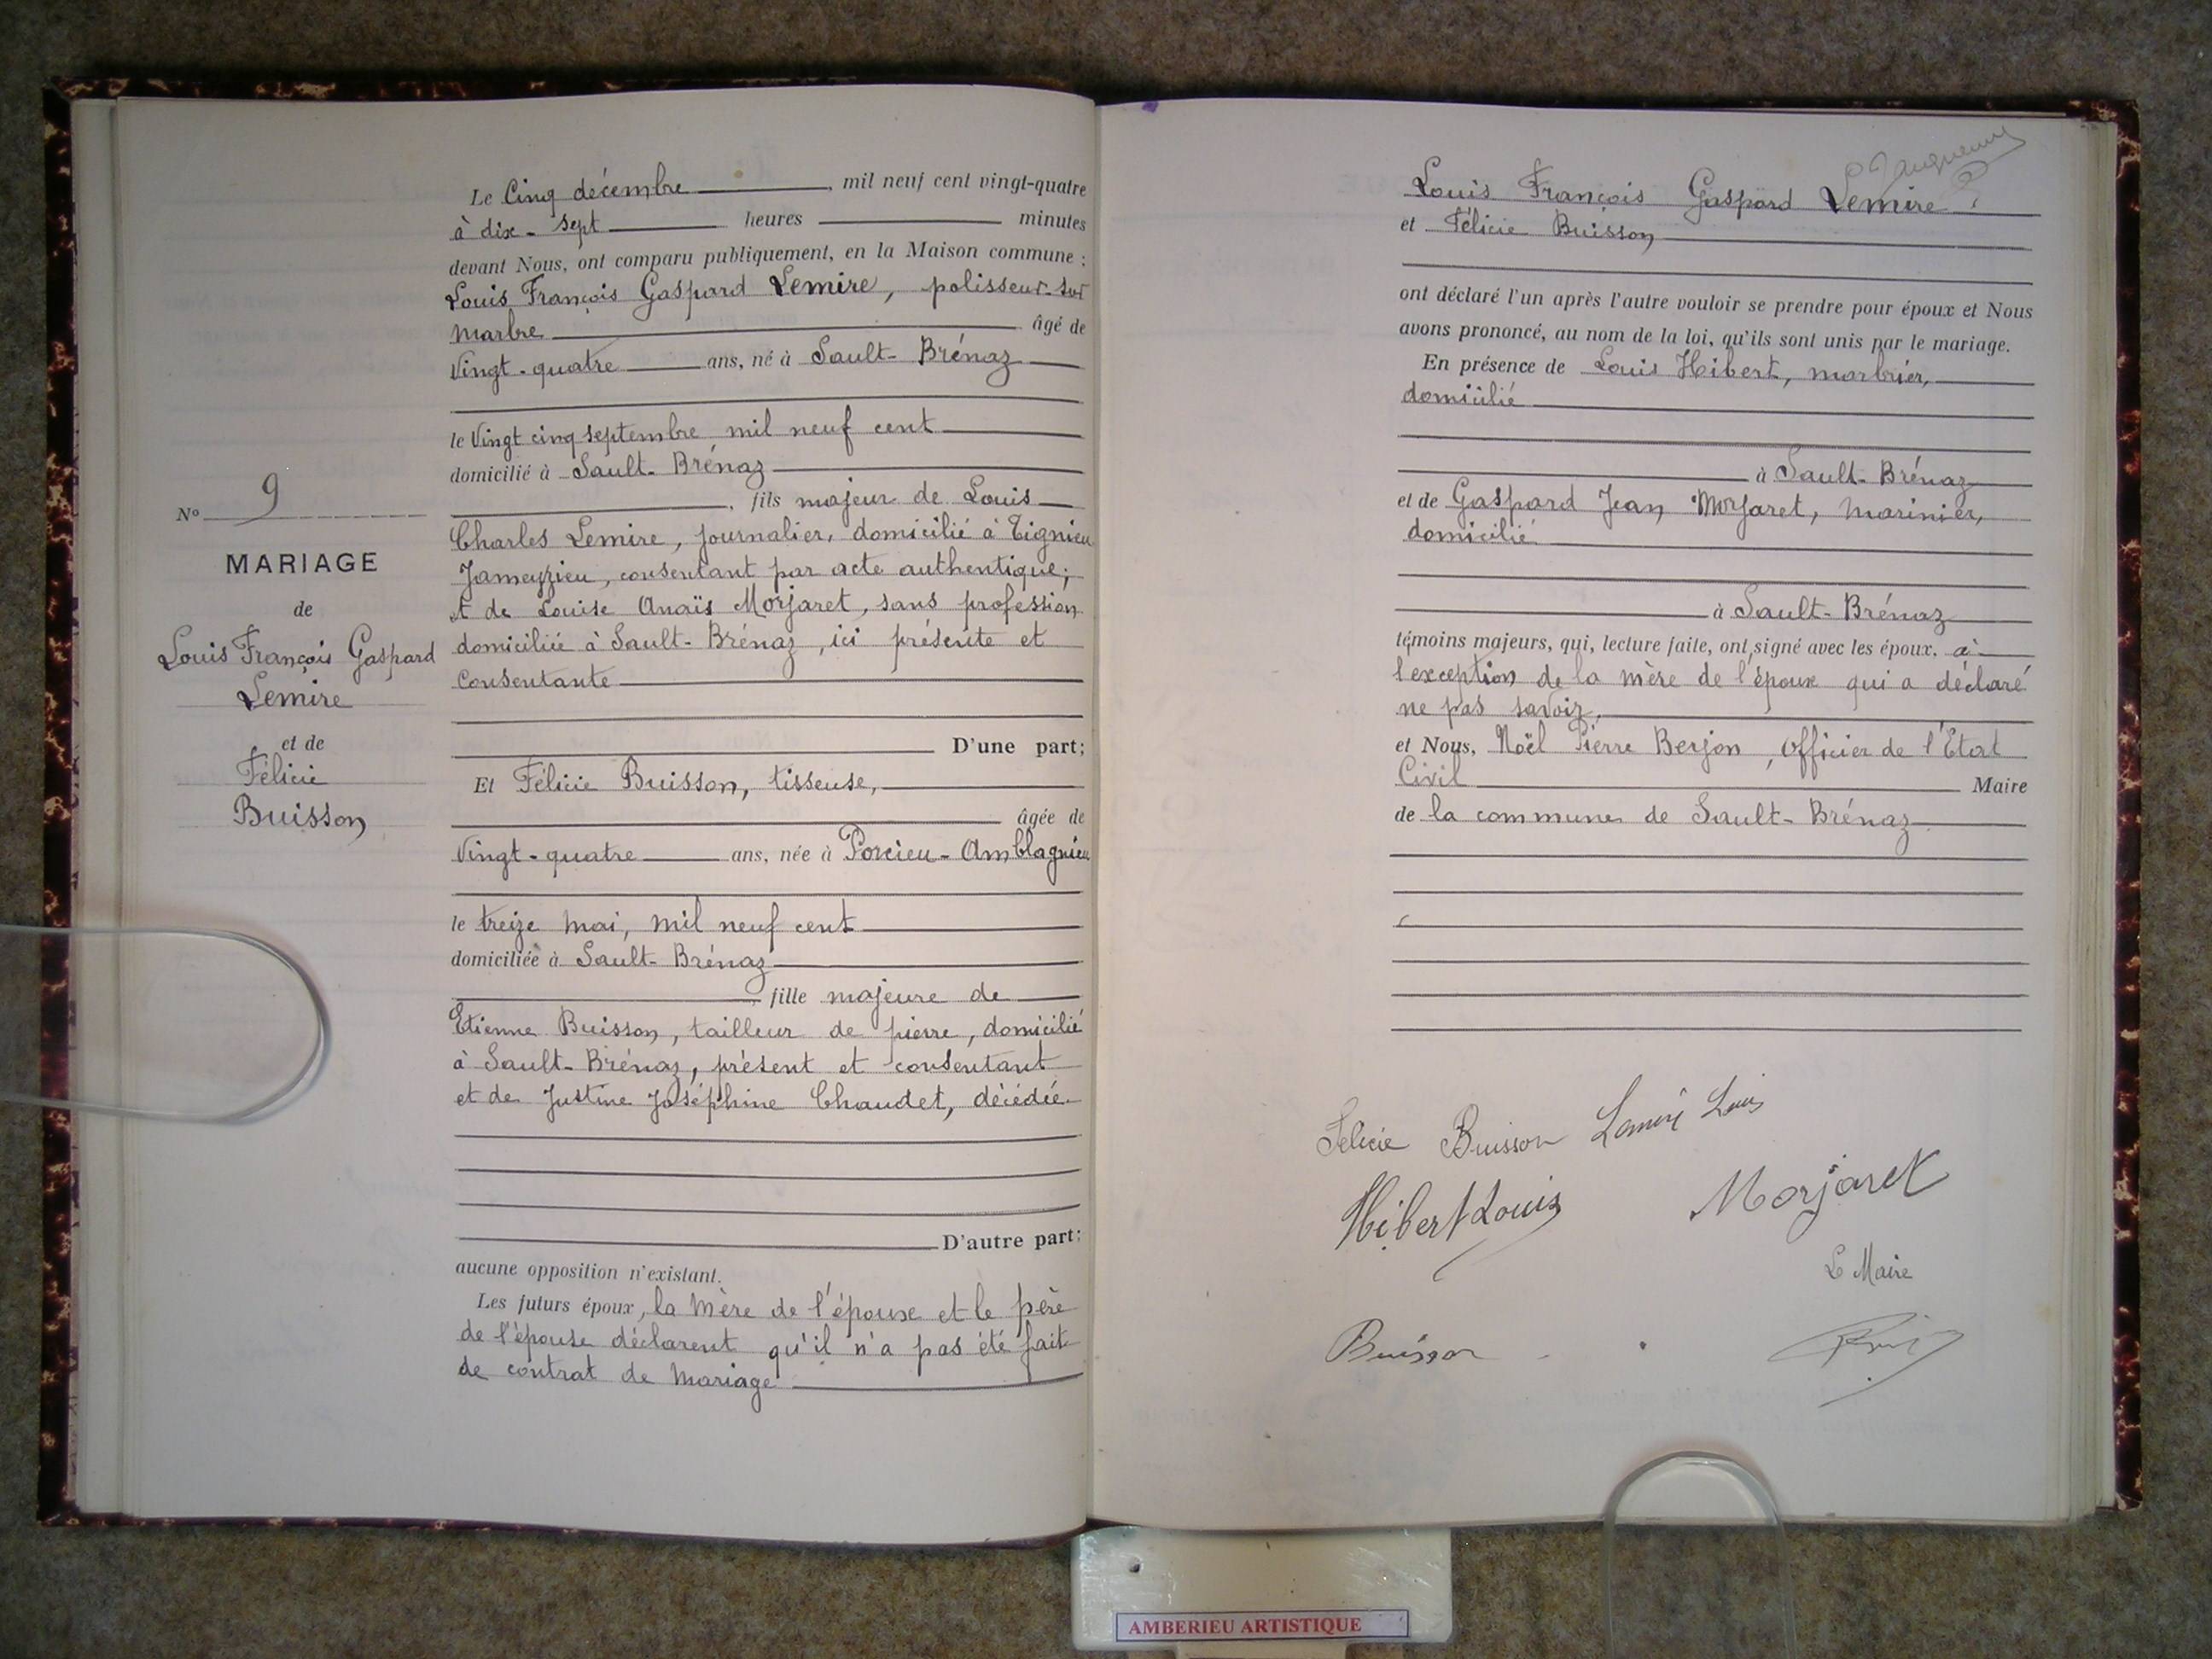 N° 9
MARIAGE
de
Louis François Gaspard
Lemire
et de
Félicie
Buisson
Le Cinq décembre, mil neuf cent vingt-quatre
à dix-sept heures minutes
devant Nous, ont comparu publiquement, en la Maison commune :
Louis François Gaspard Lemire, polisseur sur
marbre âgé de
Vingt-quatre ans, né à Sault-Brénaz
le Vingt cinq septembre mil neuf cent
domicilié à Sault-Brénaz
, fils majeur de Louis
Charles Lemire, journalier, domicilié à Tignieu
Jameyzieu, consentant par acte authentique;
et de Louise Anaïs Morjaret, sans profession
domiciliée à Sault-Brénaz, ici présente et
Consentante
D'une part;
Et Félicie Buisson, tisseuse,
âgée de
Vingt-quatre ans, née à Porcieu-Amblagnieu
le treize mai, mil neuf cent
domiciliée à Sault-Brénaz
, fille majeure de
Etienne Buisson, tailleur de pierre, domicilié
à Sault-Brénaz, présent et consentant
et de Justine Joséphine Chaudet, décédée
D'autre part;
aucune opposition n'existant.
Les futurs époux, la mère de l'époux et le père
de l'épouse déclarent qu'il n'a pas été fait
de contrat de mariage
Louis François Gaspard Lemire
et Félicie Buisson
ont déclaré l'un après l'autre vouloir se prendre pour époux et Nous
avons prononcé, au nom de la loi, qu'ils sont unis par le mariage.
En présence de Louis Hibert, marbrier,
domicilié
à Sault-Brénaz
et de Gaspard Jean Morjaret, marinier,
domicilié
à Sault-Brénaz
témoins majeurs, qui, lecture faite, ont signé avec les époux, à
l'exception de la mère de l'époux qui a déclaré
ne pas savoir,
et Nous, Noël Pierre Berjon, Officier de l'Etat
Civil Maire
de la commune de Sault-Brénaz
Félicie Buisson Lemire Louis
Hibert Louis Morjaret
Le Maire
Buisson
AMBERIEU ARTISTIQUE